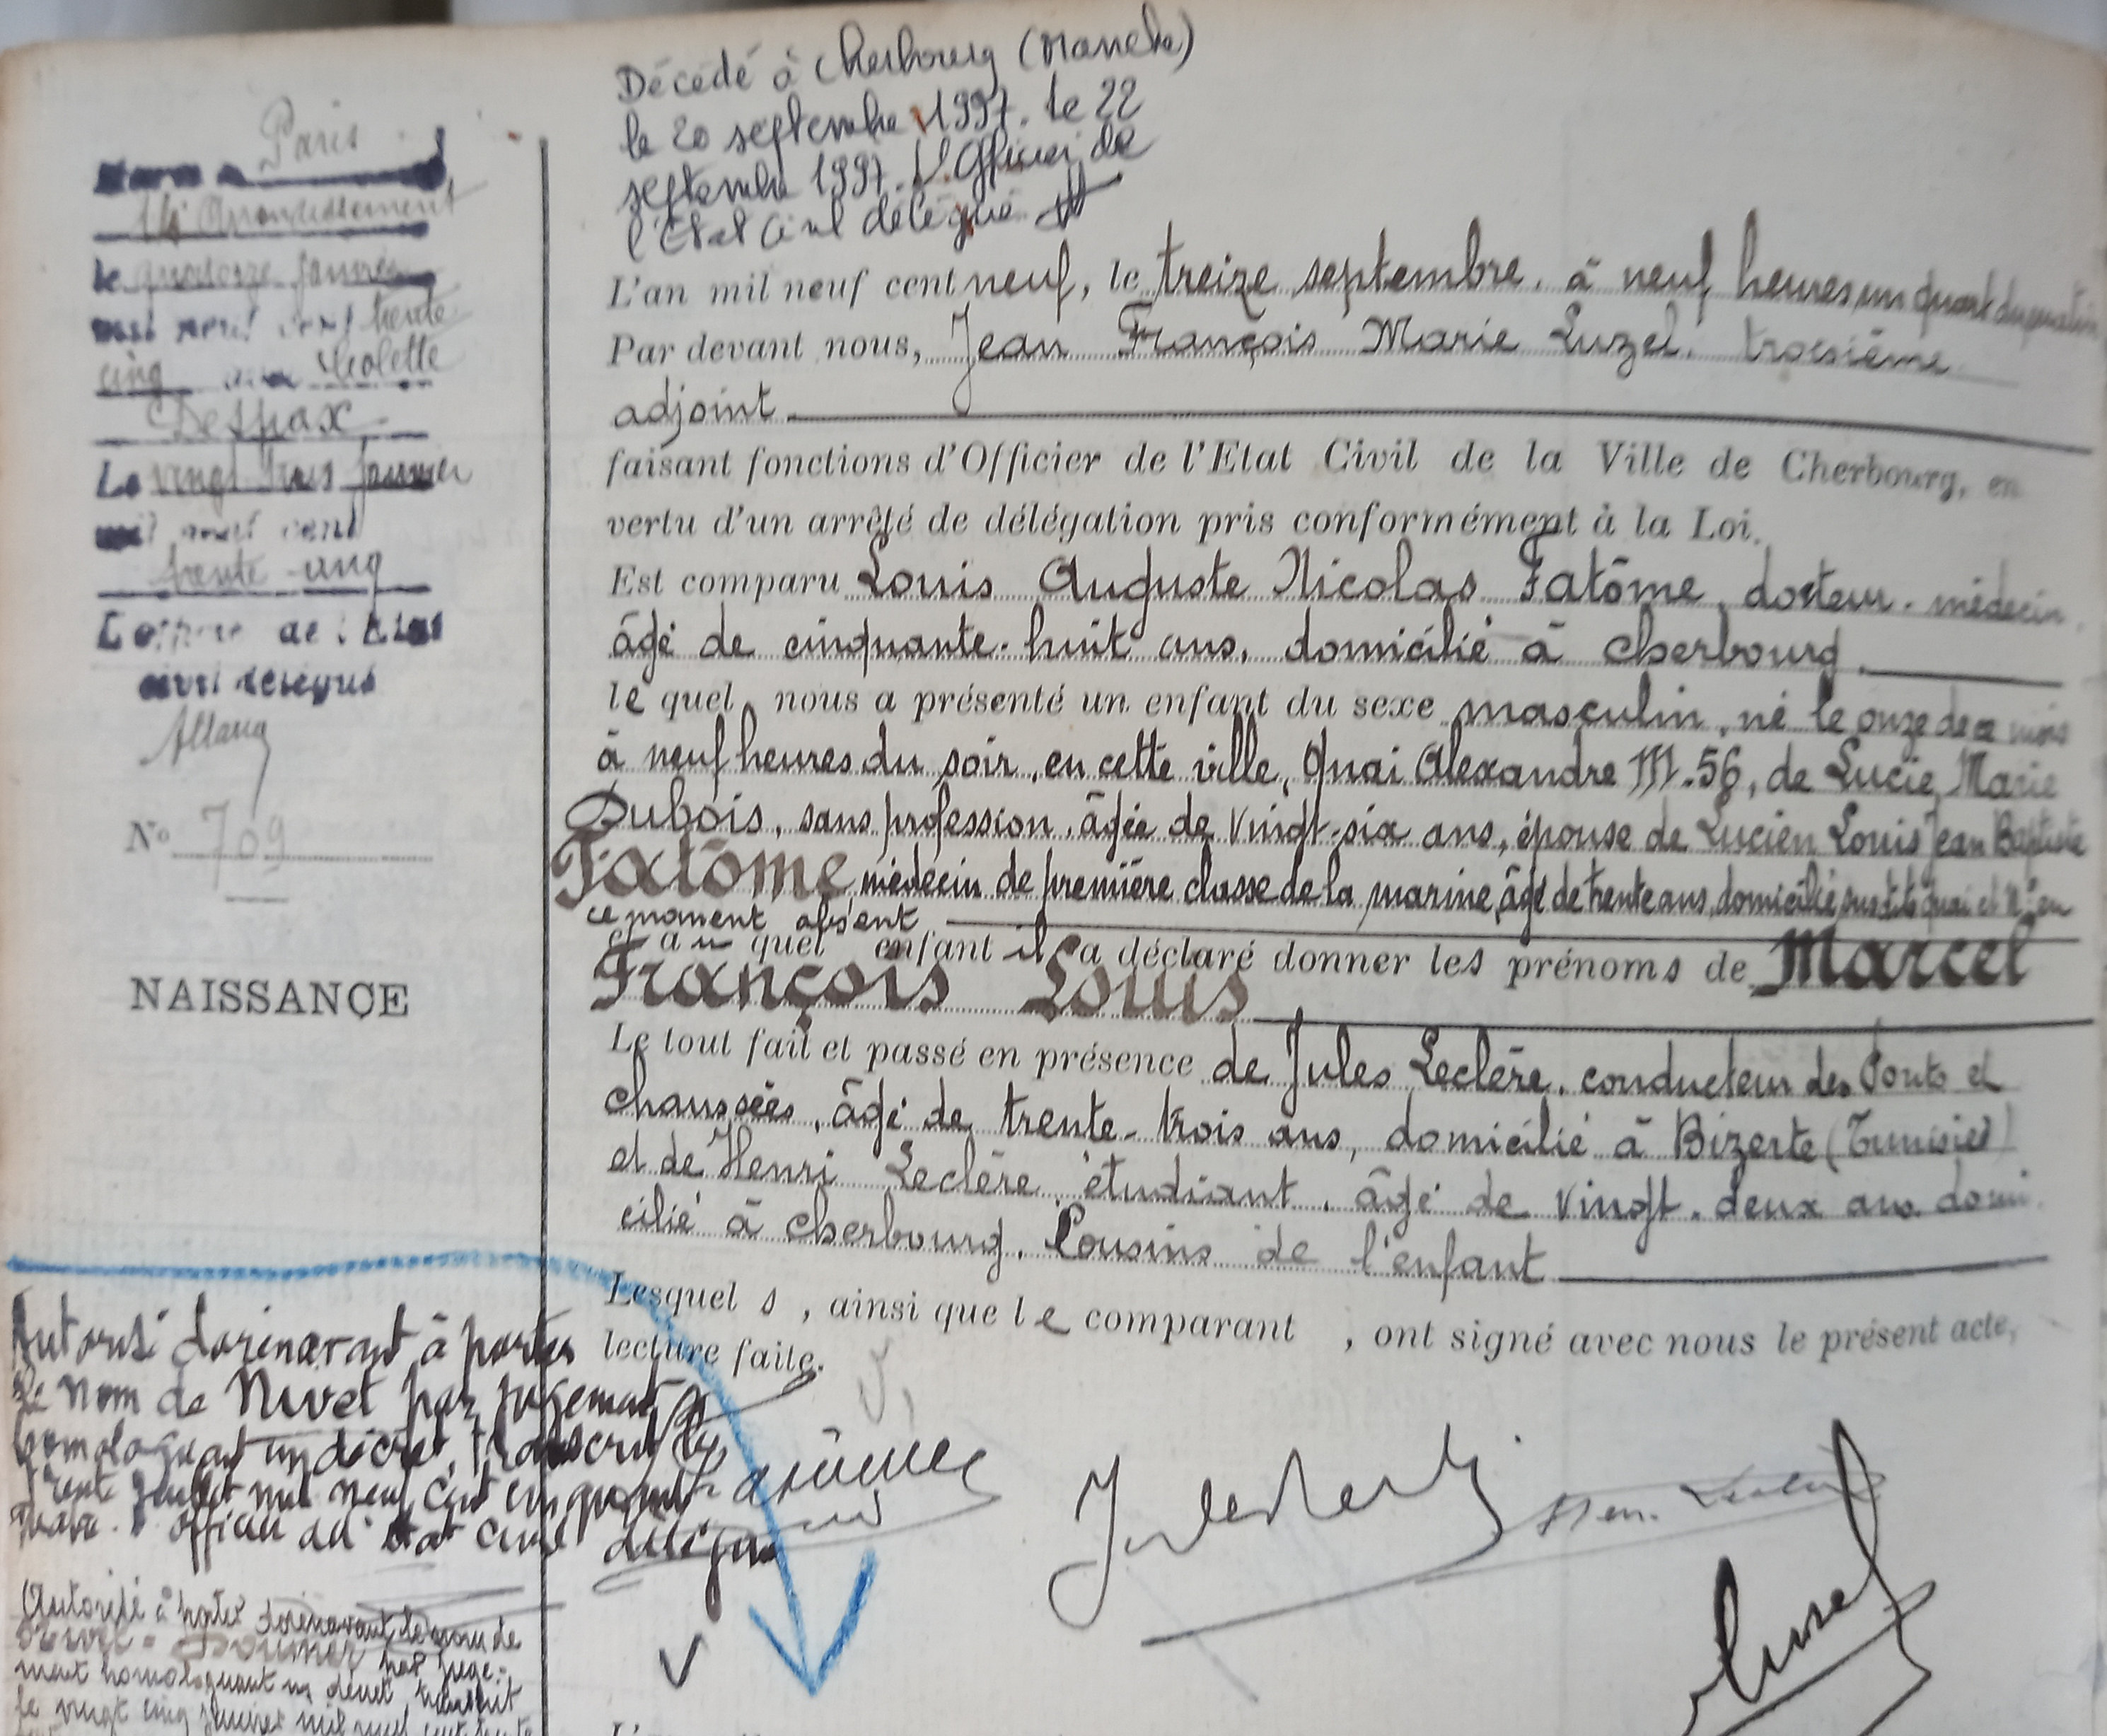 Décédé à Cherbourg (Manche)
le 20 septembre 1997. Le 22
septembre 1997. L'Officier de
l'Etat Civil délégué
Paris
14e Arrondissement
le quatorze janvier
mil neuf cent trente
cinq avec
Despax
Le vingt trois janvier
mil neuf cent
trente-cinq
L'officier de l'Etat
civil délégué
No 709
NAISSANCE
L'an mil neuf cent neuf, le treize septembre, à neuf heures un quart du matin
Par devant nous, Jean François Marie Luzel, troisième
adjoint
faisant fonctions d'Officier de l'Etat Civil de la Ville de Cherbourg, en
vertu d'un arrêté de délégation pris conformément à la Loi.
Est comparu Louis Auguste Nicolas Fatôme, docteur-médecin,
âgé de cinquante-huit ans, domicilié à Cherbourg,
le quel nous a présenté un enfant du sexe masculin, né le onze de ce mois
à neuf heures du soir, en cette ville, Quai Alexandre III-56, de Lucie Marie
Dubois, sans profession, âgée de vingt-six ans, épouse de Lucien Louis Jean Baptiste
Fatôme, médecin de première classe de la marine, âgé de trente ans, domicilié susdits quai et No, en
ce moment absent
et au quel enfant il a déclaré donner les prénoms de Marcel
François Louis
Le tout fait et passé en présence de Jules Leclère, conducteur des Ponts et
chaussées, âgé de trente-trois ans, domicilié à Bizerte (Tunisie)
et de Henri Leclère, étudiant, âgé de vingt-deux ans, domi
cilié à Cherbourg, Cousins de l'enfant
Lesquels, ainsi que le comparant, ont signé avec nous le présent acte,
lecture faite.
Autorisé dorénavant à porter
le nom de Nivet par jugement
homologuant un décret, transcrit le
trente juillet mil neuf cent cinquante
officier de l'état civil délégué
Jules Leclère
Henri Leclère
Luzel
Autorisé à porter dorénavant le nom de
par juge-
ment homologuant un décret, transcrit
le vingt cinq janvier mil neuf cent